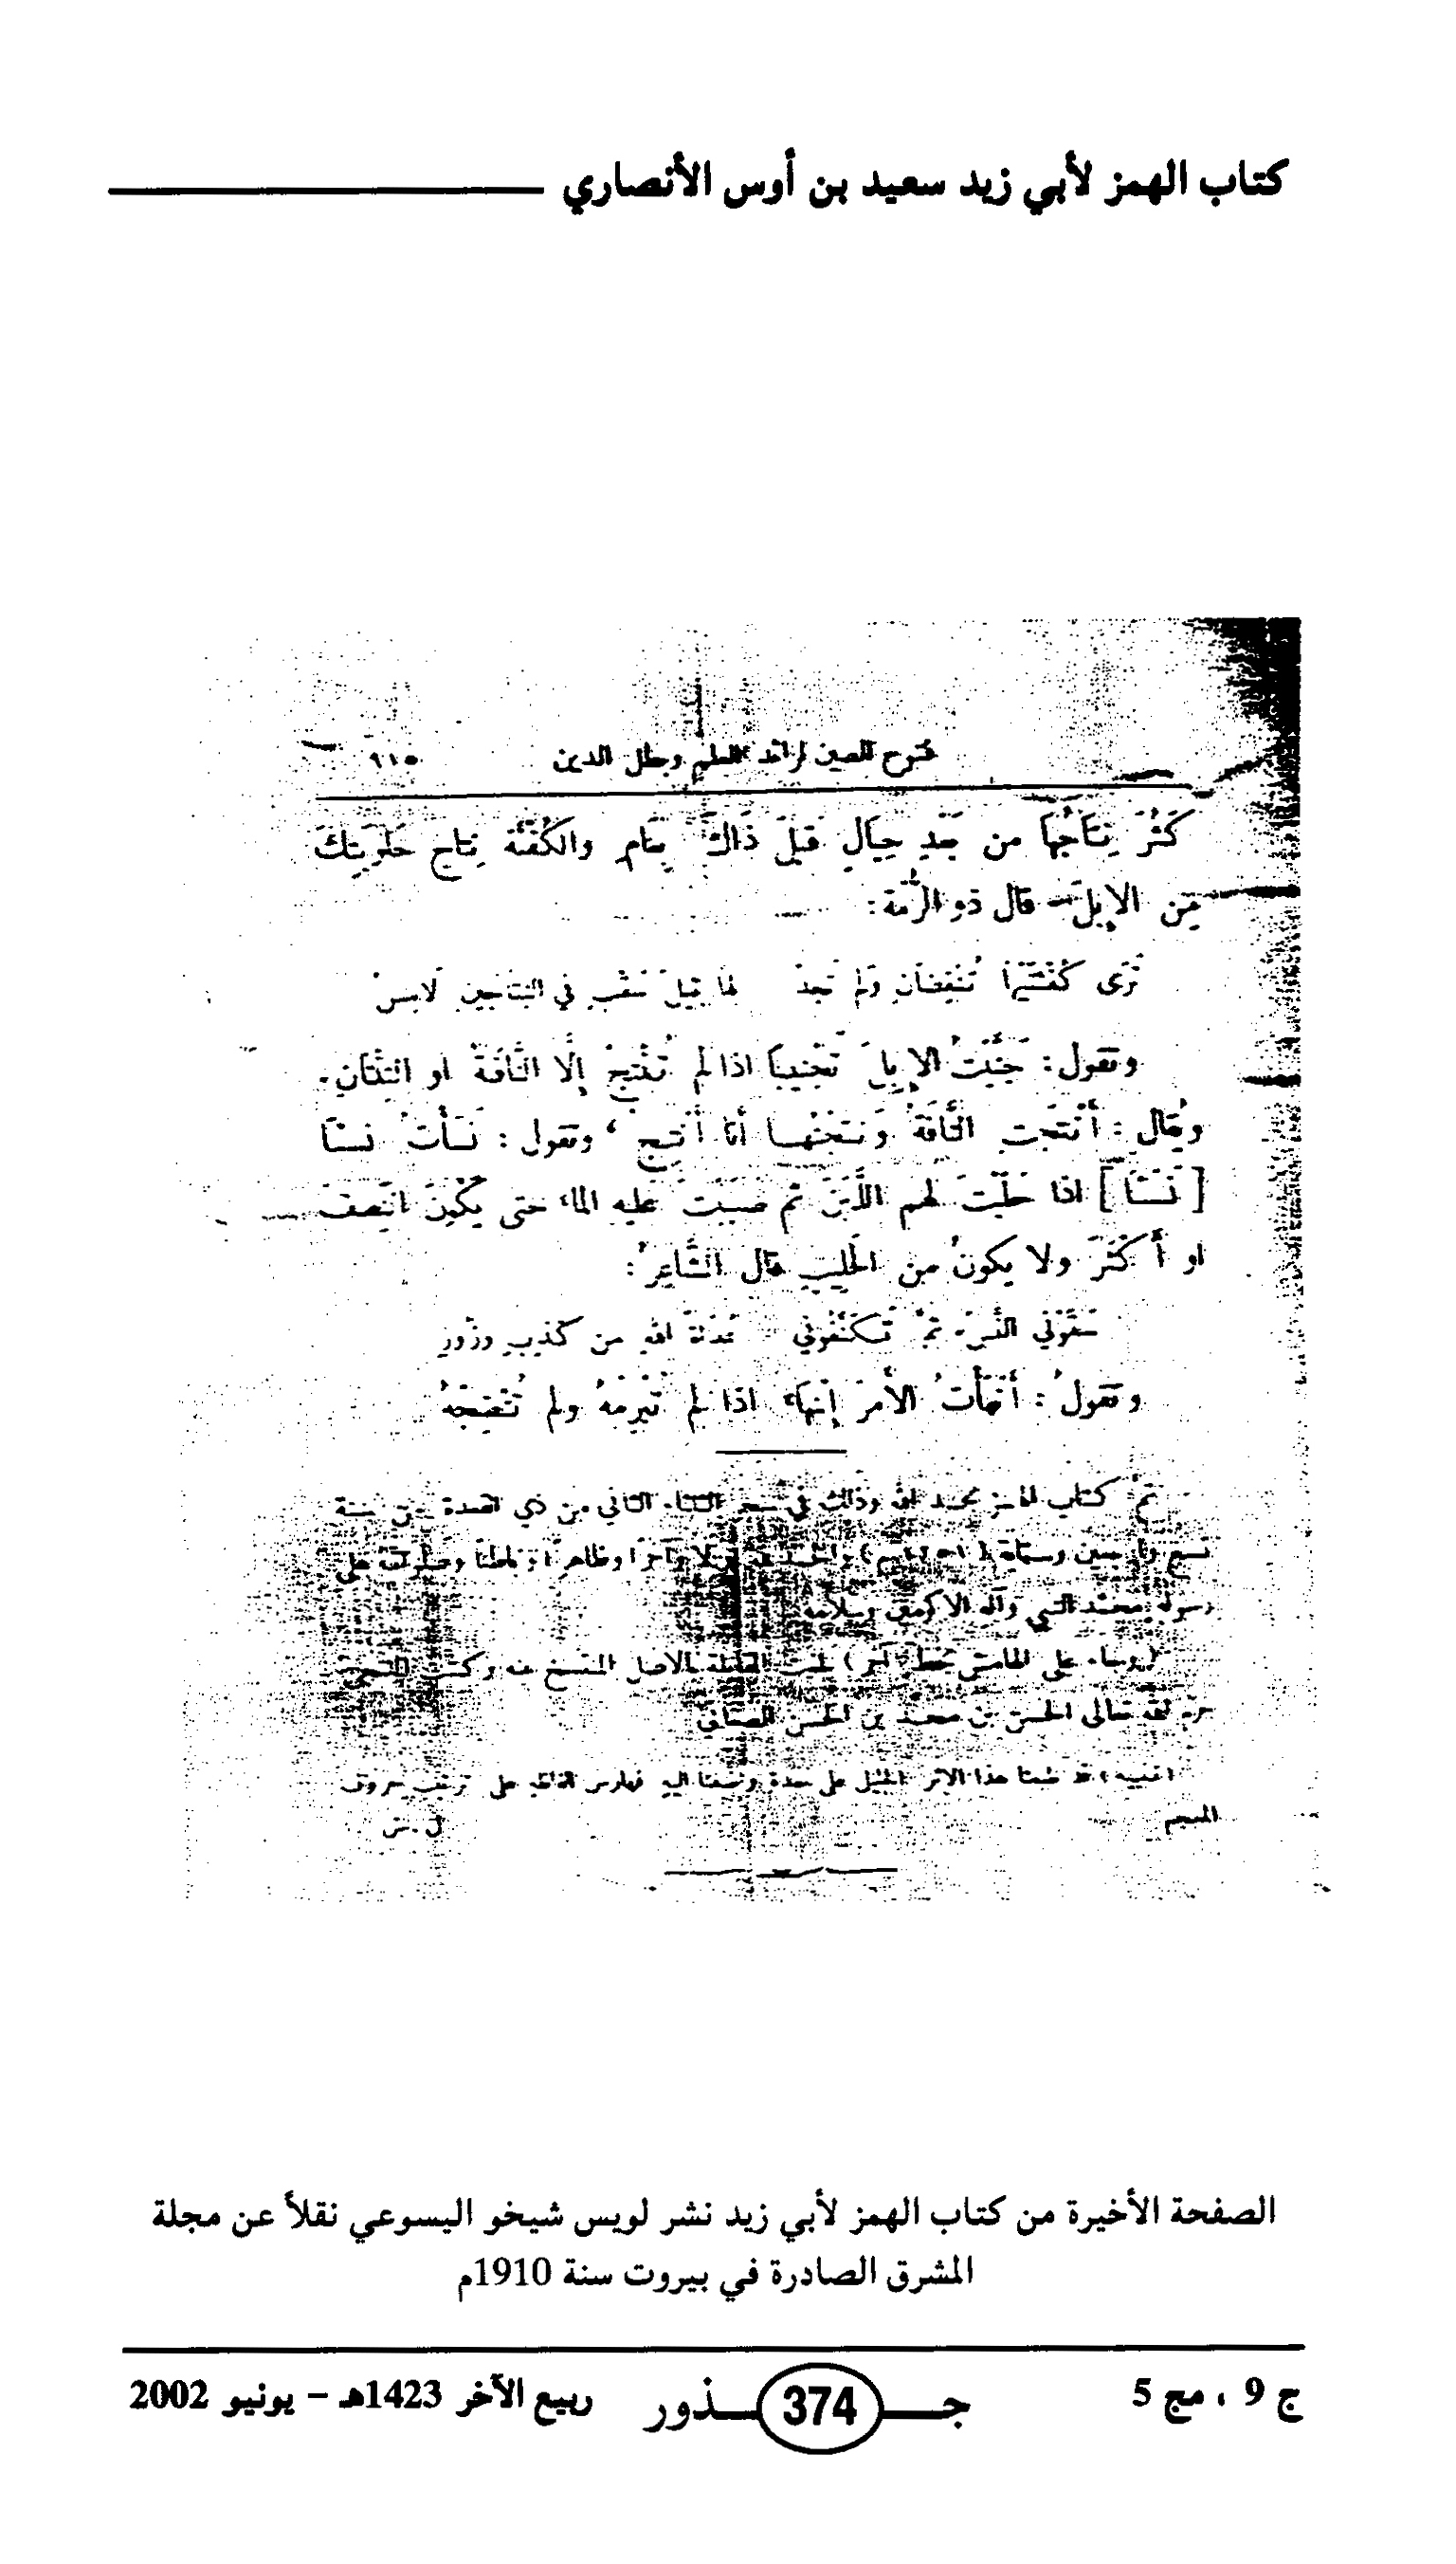 كتاب الهمز لأبي زيد سعيد بن أوس الأنصاري
٩١٥
كَثُرَ نِتَاجُهَا من بَعْدِ حِيَالٍ قَبْلَ ذَاكَ بِعَامٍ والكُفْأَةُ نِتاج حَلُوبَتِكَ
مِن الإِبِل قال ذو الرُّمة:
تَرَى كُفْأَتَيْهَا تُنْفِضَانِ وَلَمْ تَجِدْ لها ثِيلَ سَقْبٍ في النِّتَاجَيْنِ لَامِسُ
وتقول: جَنَّبْتُ الإِبِلَ تَجْنِيبًا اذا لم تُنْتِجْ إِلَّا النَّاقَةُ او الثِّنْتَانِ.
ويُقال: أُنْتِجَتِ النَّاقَةُ وَنَتَجْتُهَا أنا أُنْتِجُ، وتقول: نَسَأْتُ نسئًا
[نَسْئًا] اذا حَلَبْتَ لهم اللَّبَنَ ثم صَبَبْتَ عليه الماء حتى يَكُونَ النِّصْفَ
او أَكْثَرَ ولا يكونُ من الحَلِيبِ قال الشَّاعِرُ:
سَقَوْنِي النَّسْءَ ثُمَّ تَكَنَّفُونِي عُدَاةَ اللهِ من كَذِبٍ وزُورِ
وتقولُ: أَنْهَأْتُ الأَمرَ إِنْهَاءً اذا لم تُبْرِمْهُ ولم تُنْضِجْهُ
تم كتاب الهمز بحمد الله وذلك في الثاني من ذي القعدة من سنة
رسوله محمد النبي وآله الأكرمين وسلامه
بالأصل المنتسخ منه وكتب
الله تعالى الحسن بن محمد بن الحسن الصغاني
(تنبيه) قد طبعنا هذا الاثر الجليل على حدة وضمنا اليه فهارس الفاظه على ترتيب حروف
المعجم ل. ش
الصفحة الأخيرة من كتاب الهمز لأبي زيد نشر لويس شيخو اليسوعي نقلاً عن مجلة
المشرق الصادرة في بيروت سنة 1910م
ج 9 ، مج 5 جـــذور 374 ربيع الآخر 1423هـ - يونيو 2002